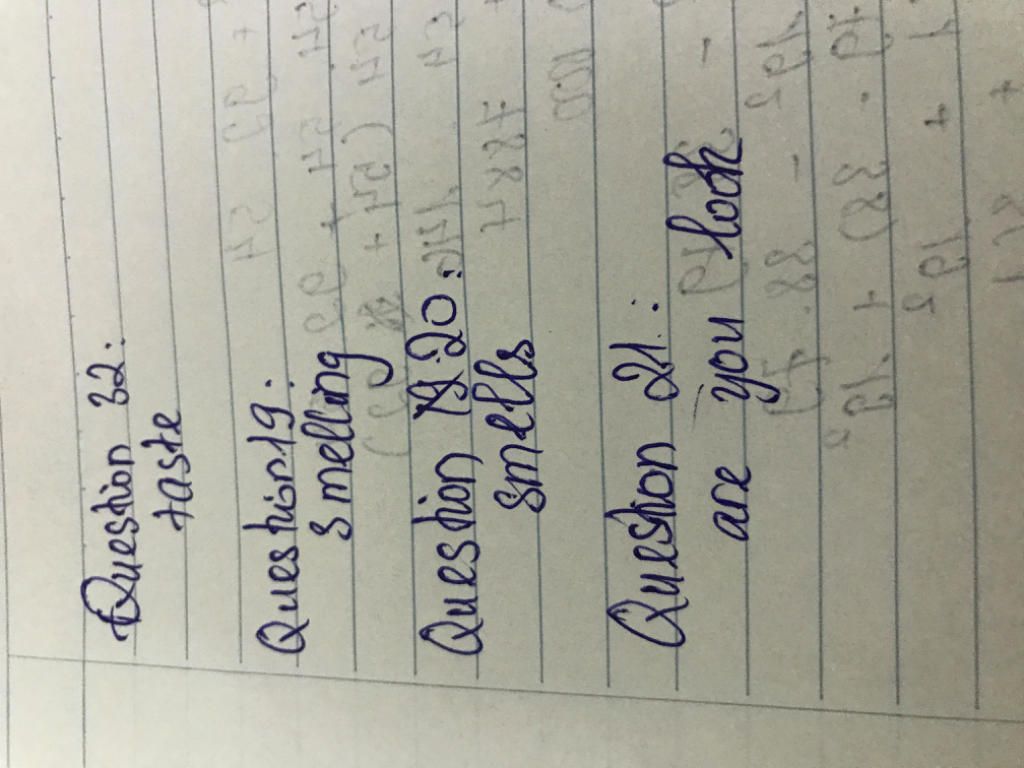 Question 32:
taste
Question 19:
smelling
Question 20:
smells
Question 21:
are you look